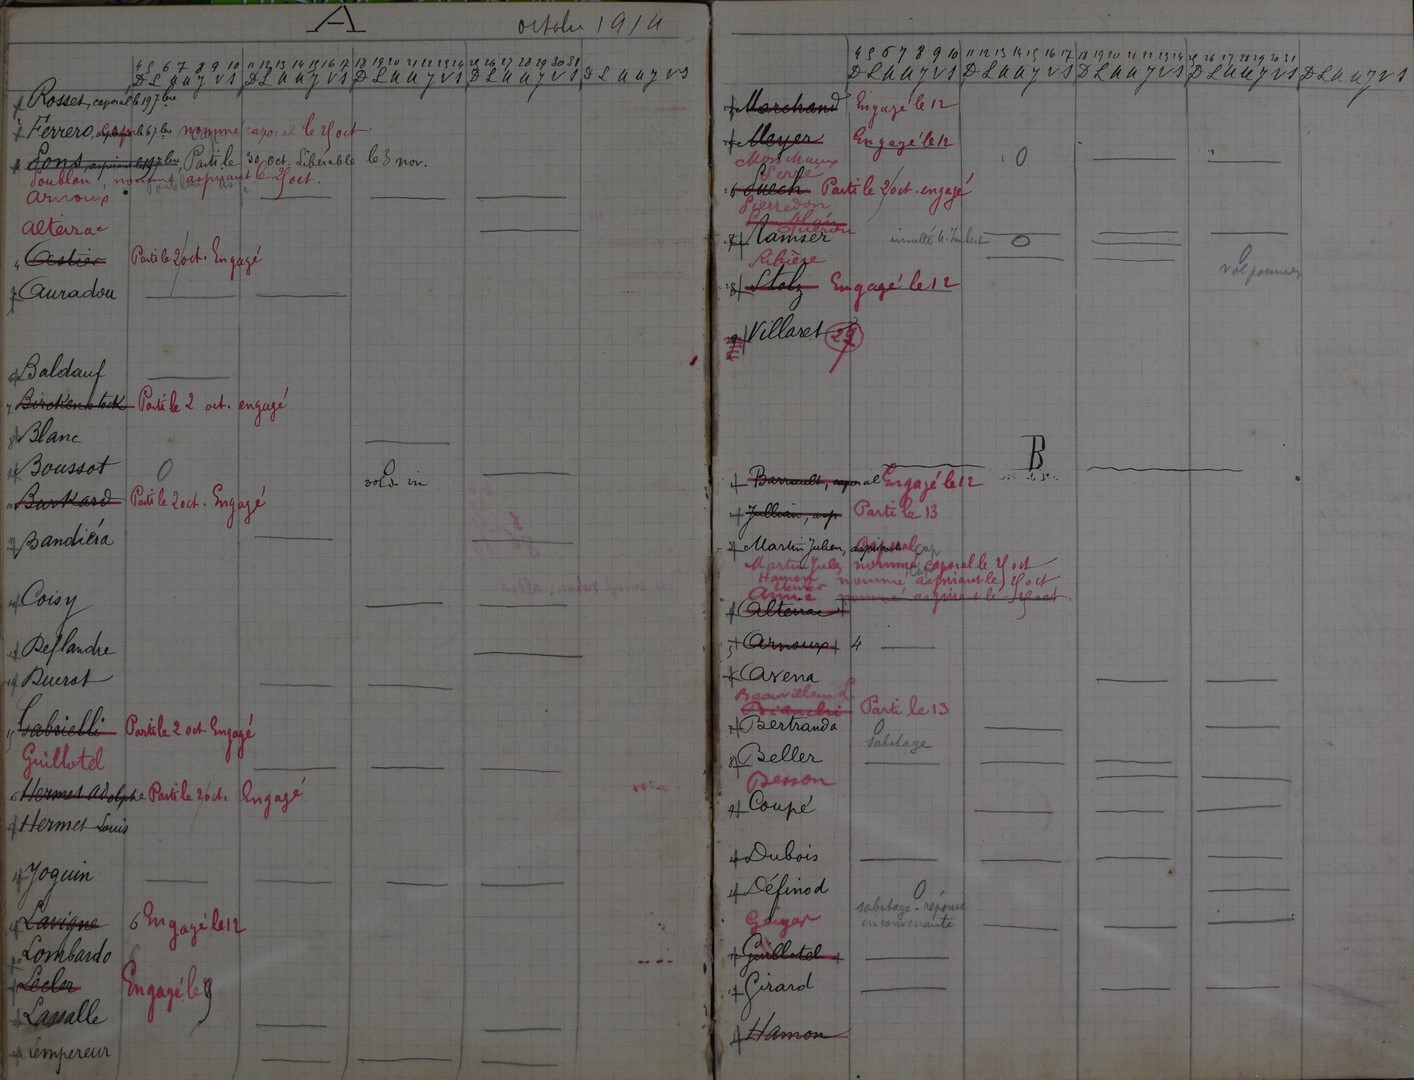 A octobre 1914
4 5 6 7 8 9 10 11 12 13 14 15 16 17 18 19 20 21 22 23 24 25 26 27 28 29 30 31
D L M M J V S D L M M J V S D L M M J V S D L M M J V S D L M M J V S
Rosset, caporal le 19 7bre
Ferrero, nommé caporal le 25 oct
Pons, aspirant le 19 7bre Parti le 30 oct. Libérable le 3 nov.
Poublan, nommé aspirant le 25 oct.
Arnoux
Alteirac
Astier Parti le 2 oct. Engagé
Auradou
Baldauf
Birckenstock Parti le 2 oct. engagé
Blanc
Boussot 0 0
vol de vin
Burkard Parti le 2 oct. Engagé
Bandiéra
Coisy
Deflandre
Duerot
Gabrielli Parti le 2 oct Engagé
Guillotel
Hermet Adolphe Parti le 2 oct. Engagé
Hermet Louis
Joguin
Lavigne 6 Engagé le 12
Lombardo
Lecler Engagé le 9
Lassalle
Lempereur
4 5 6 7 8 9 10 11 12 13 14 15 16 17 18 19 20 21 22 23 24 25 26 27 28 29 30 31
D L M M J V S D L M M J V S D L M M J V S D L M M J V S D L M M J V S
Marchand Engagé le 12
Meyer Engagé le 12
Monmaux 0
Serre
Puech Parti le 2 oct. engagé
Pierredon
Ramser insulte à Imbert 0
Ribière 0
vol pommes
Stolz Engagé le 12
Villaret 29
B
Barrault, caporal Engagé le 12
Jullian, asp Parti le 13
Martin Julien, aspirant caporal
Martin Jules nommé caporal le 25 oct
Hamon nommé aspirant le 25 oct
Anné nommé aspirant le 25 oct
Alteirac
Arnoux 4
Avena
Bianchi Parti le 13
Bertrando 0
sabotage
Beller
Besson
Coupé
Dubois
Définod 0
sabotage - réponse
Geiger inconvenante
Guillotel
Girard
Hamon